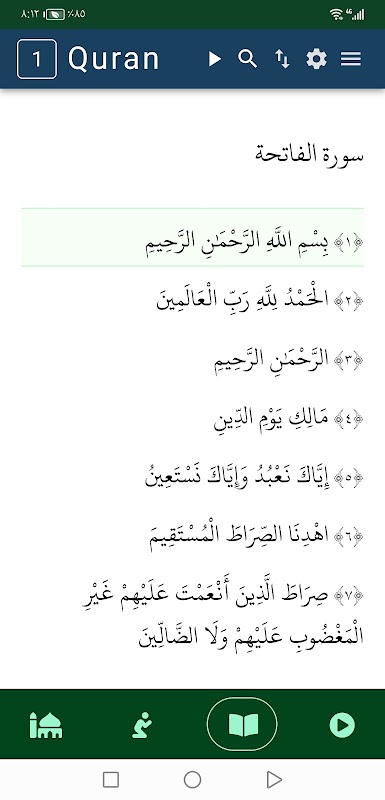 ٨:١٢ ٪٨٥ 4G
1 Quran
سورة الفاتحة
﴿١﴾ بِسْمِ اللَّهِ الرَّحْمَٰنِ الرَّحِيمِ
﴿٢﴾ الْحَمْدُ لِلَّهِ رَبِّ الْعَالَمِينَ
﴿٣﴾ الرَّحْمَٰنِ الرَّحِيمِ
﴿٤﴾ مَالِكِ يَوْمِ الدِّينِ
﴿٥﴾ إِيَّاكَ نَعْبُدُ وَإِيَّاكَ نَسْتَعِينُ
﴿٦﴾ اهْدِنَا الصِّرَاطَ الْمُسْتَقِيمَ
﴿٧﴾ صِرَاطَ الَّذِينَ أَنْعَمْتَ عَلَيْهِمْ غَيْرِ
الْمَغْضُوبِ عَلَيْهِمْ وَلَا الضَّالِّينَ